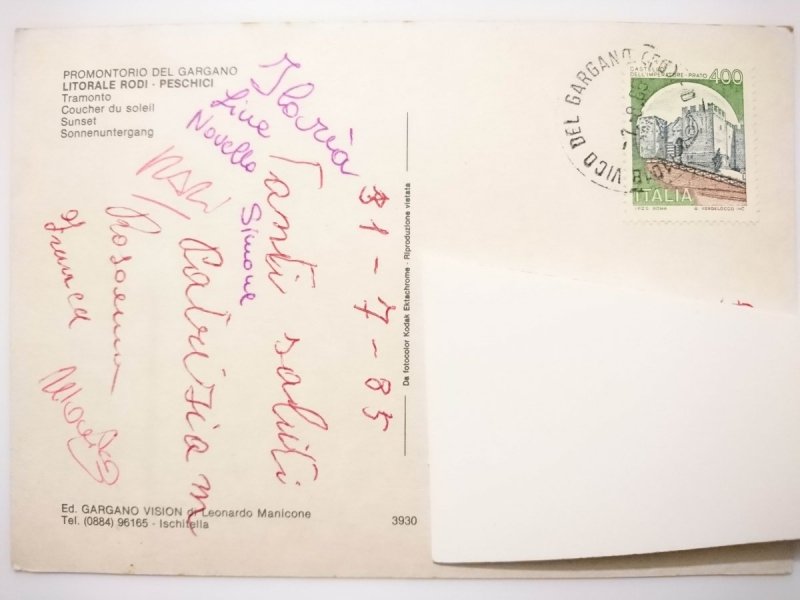 PROMONTORIO DEL GARGANO
LITORALE RODI - PESCHICI
Tramonto
Coucher du soleil
Sunset
Sonnenuntergang
31-7-85
Tanti saluti
Ilaria
Novella Simone
Patrizia
Rosanna
Franca
Da fotocolor Kodak Ektachrome - Riproduzione vietata
Ed. GARGANO VISION di Leonardo Manicone
Tel. (0884) 96165 - Ischitella
3930
VICO DEL GARGANO (FG)
CASTELLO
DELL'IMPERATORE - PRATO
400
ITALIA